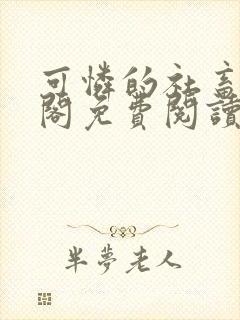 可憐的社畜
閣免費閱讀
半夢老人